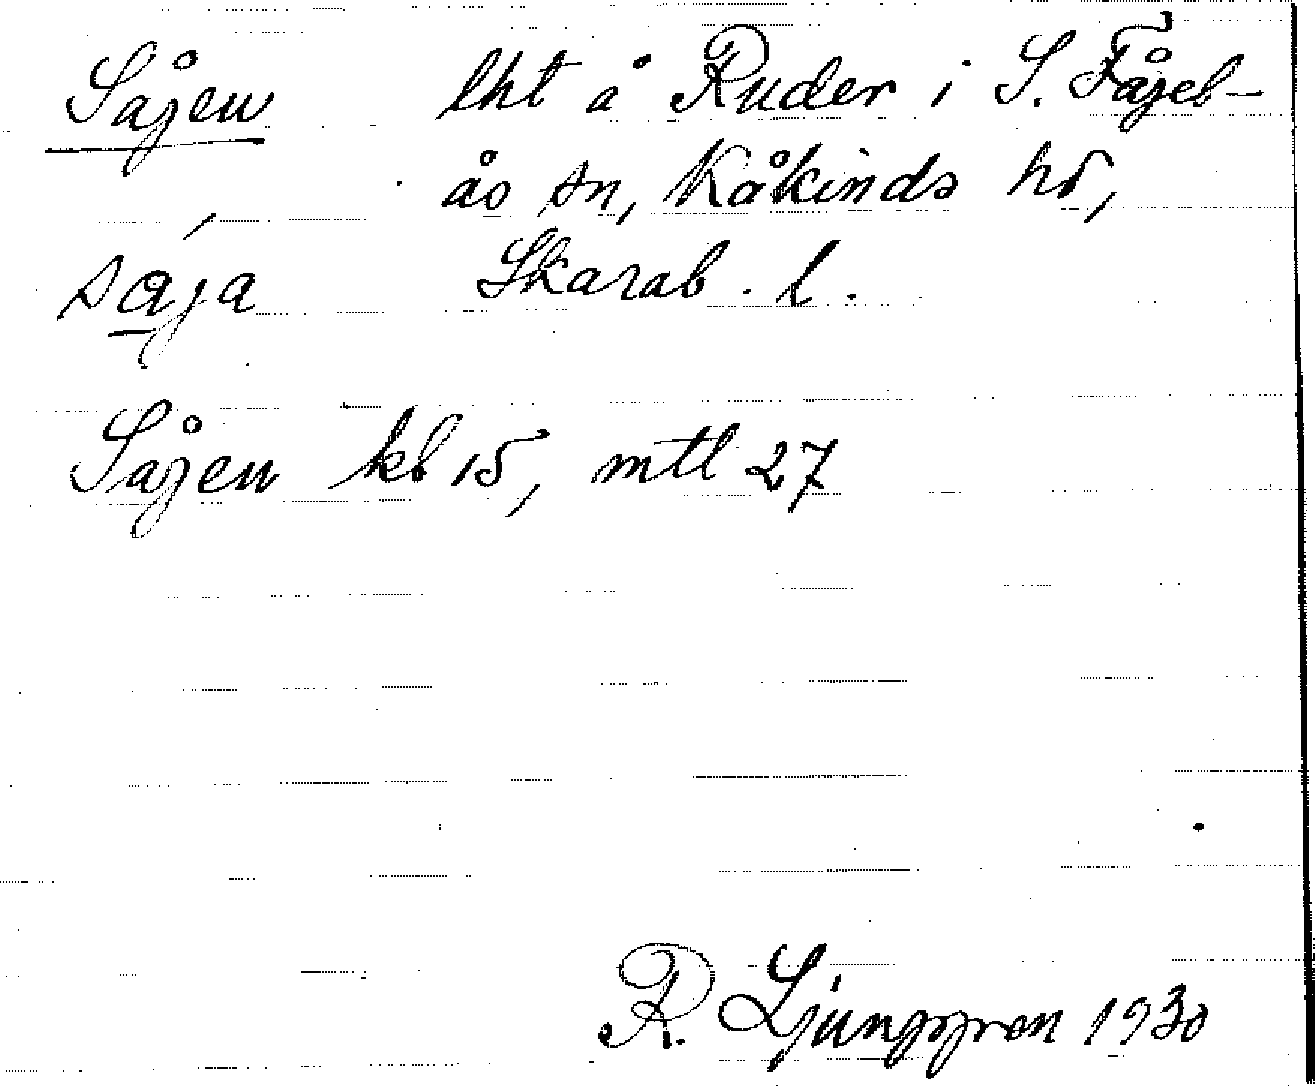 Såjen lht å Ruder i S. Fågel-
ås sn, Kåkinds hd,
såja Skarab. l.
Såjen kb 15, mtl 27
R. Ljunggren 1930